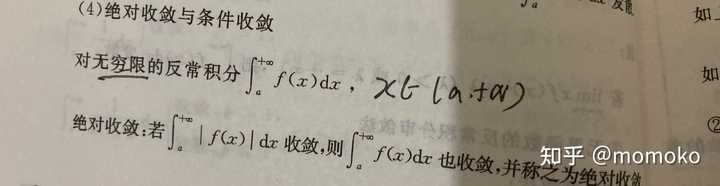 (4)绝对收敛与条件收敛
对无穷限的反常积分∫_a^{+∞} f(x)dx, x∈(a.+∞)
绝对收敛:若∫_a^{+∞} |f(x)|dx 收敛,则∫_a^{+∞} f(x)dx 也收敛,并称之为绝对收敛
发散
如
如
②
知乎 @momoko